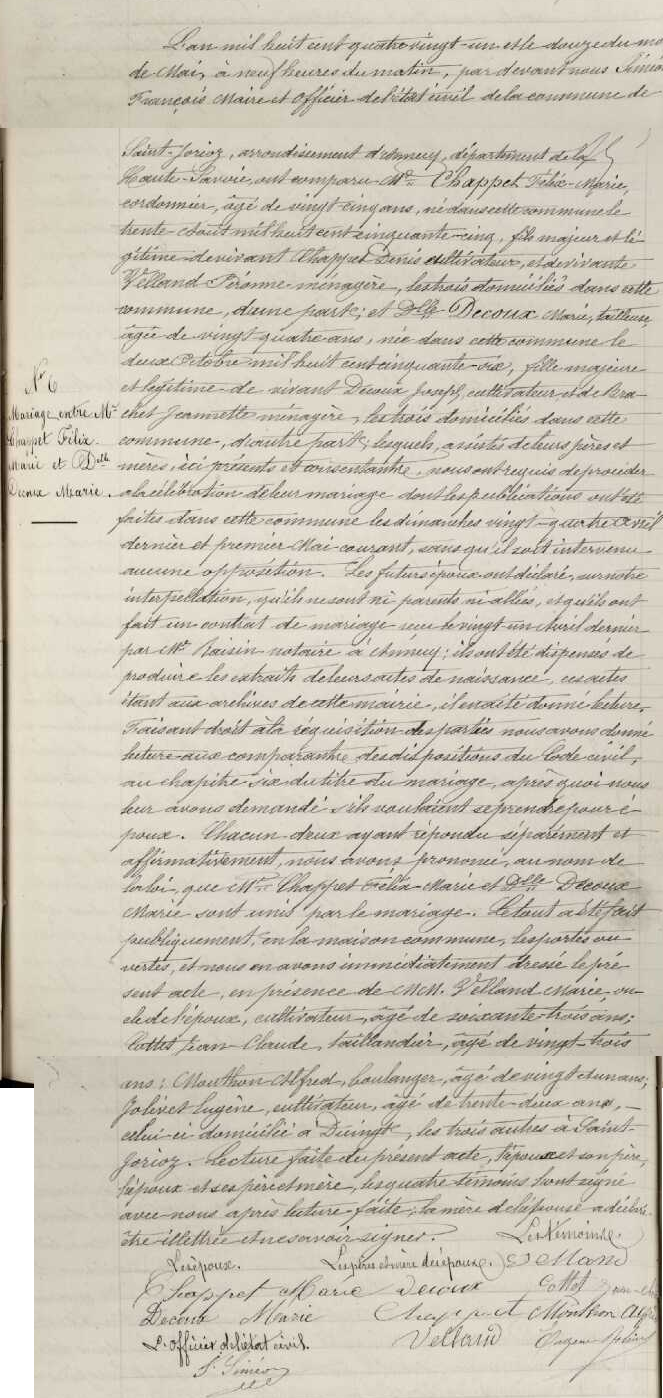 L'an mil huit cent quatre vingt-un et le douze du mo
de Mai, à neuf heures du matin, par devant nous Siméo
François Maire et Officier de l'état civil de la commune de
Saint-Jorioz, arrondissement d'Annecy, département de la
Haute-Savoie, ont comparu Mr. Chappet Félix-Marie,
cordonnier, âgé de vingt-cinq ans, né dans cette commune le
trente Août mil huit cent cinquante-cinq, fils majeur et lé-
gitime de vivant Chappet Denis cultivateur, et de vivante
Velland Péronne ménagère, les trois domiciliés dans cette
commune, d'une part; et Dlle Decoux Marie, tailleuse,
âgée de vingt quatre ans, née dans cette commune le
deux Octobre mil huit cent cinquante-six, fille majeure
et légitime de vivant Decoux Joseph, cultivateur, et de Bra-
chet Jeannette ménagère, les trois domiciliés dans cette
commune, d'autre part; lesquels, assistés de leurs pères et
mères, ici présents et consentants, nous ont requis de procéder
à la célébration de leur mariage dont les publications ont été
faites dans cette commune les dimanches vingt-quatre Avril
dernier et premier Mai courant, sans qu'il soit intervenu
aucune opposition. Les futurs époux ont déclaré, sur notre
interpellation, qu'ils ne sont ni parents ni alliés, et qu'ils ont
fait un contrat de mariage reçu le vingt un Avril dernier
par Me Raisin notaire à Annecy; ils ont été dispensés de
produire les extraits de leurs actes de naissance, ces actes
étant aux archives de cette mairie, il en a été donné lecture.
Faisant droit à la réquisition des parties nous avons donné
lecture aux comparants des dispositions du Code civil,
au chapitre six du titre du mariage, après quoi nous
leur avons demandé s'ils voulaient se prendre pour é-
poux. Chacun d'eux ayant répondu séparément et
affirmativement, nous avons prononcé, au nom de
la loi, que Mr. Chappet Félix-Marie et Dlle Decoux
Marie sont unis par le mariage. Le tout a été fait
publiquement, en la maison commune, les portes ou-
vertes, et nous en avons immédiatement dressé le pré-
sent acte, en présence de MM. Velland Marie, on-
cle de l'époux, cultivateur, âgé de soixante-trois ans;
Cottet Jean-Claude, taillandier, âgé de vingt-trois
ans; Monthon Alfred, boulanger, âgé de vingt et un ans;
Jolivet Eugène, cultivateur, âgé de trente-deux ans,
celui-ci domicilié à Duingt, les trois autres à Saint-
Jorioz. Lecture faite du présent acte, l'époux et son père,
l'époux et ses père et mère, les quatre témoins l'ont signé
avec nous après lecture faite; la mère de l'épouse a déclaré
être illettrée et ne savoir signer.
No 6
Mariage entre Mr.
Chappet Félix-
Marie et Dlle
Decoux Marie.
Les Témoins.
Les époux. Les pères et mère des époux. Velland
Chappet Marie Decoux Cottet Jean-
Decoux Marie Chappet Monthon Alfre
L'Officier de l'état civil. Velland Eugène Jolivet
F. Siméo